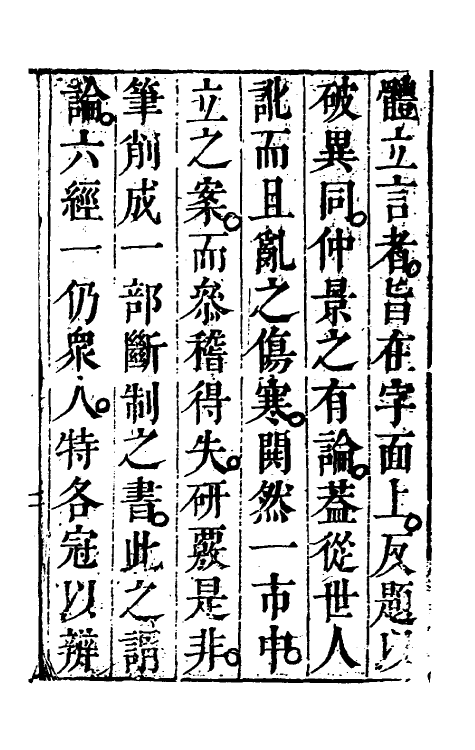 體立言者。皆在字面上。反題以
破異同。仲景之有論。葢從世人
訛而且亂之傷寒。閧然一市中。
立之案。而叅稽得失。研覈是非。
筆削成一部斷制之書。此之謂
論。六經一仍衆人。特各冠以辨